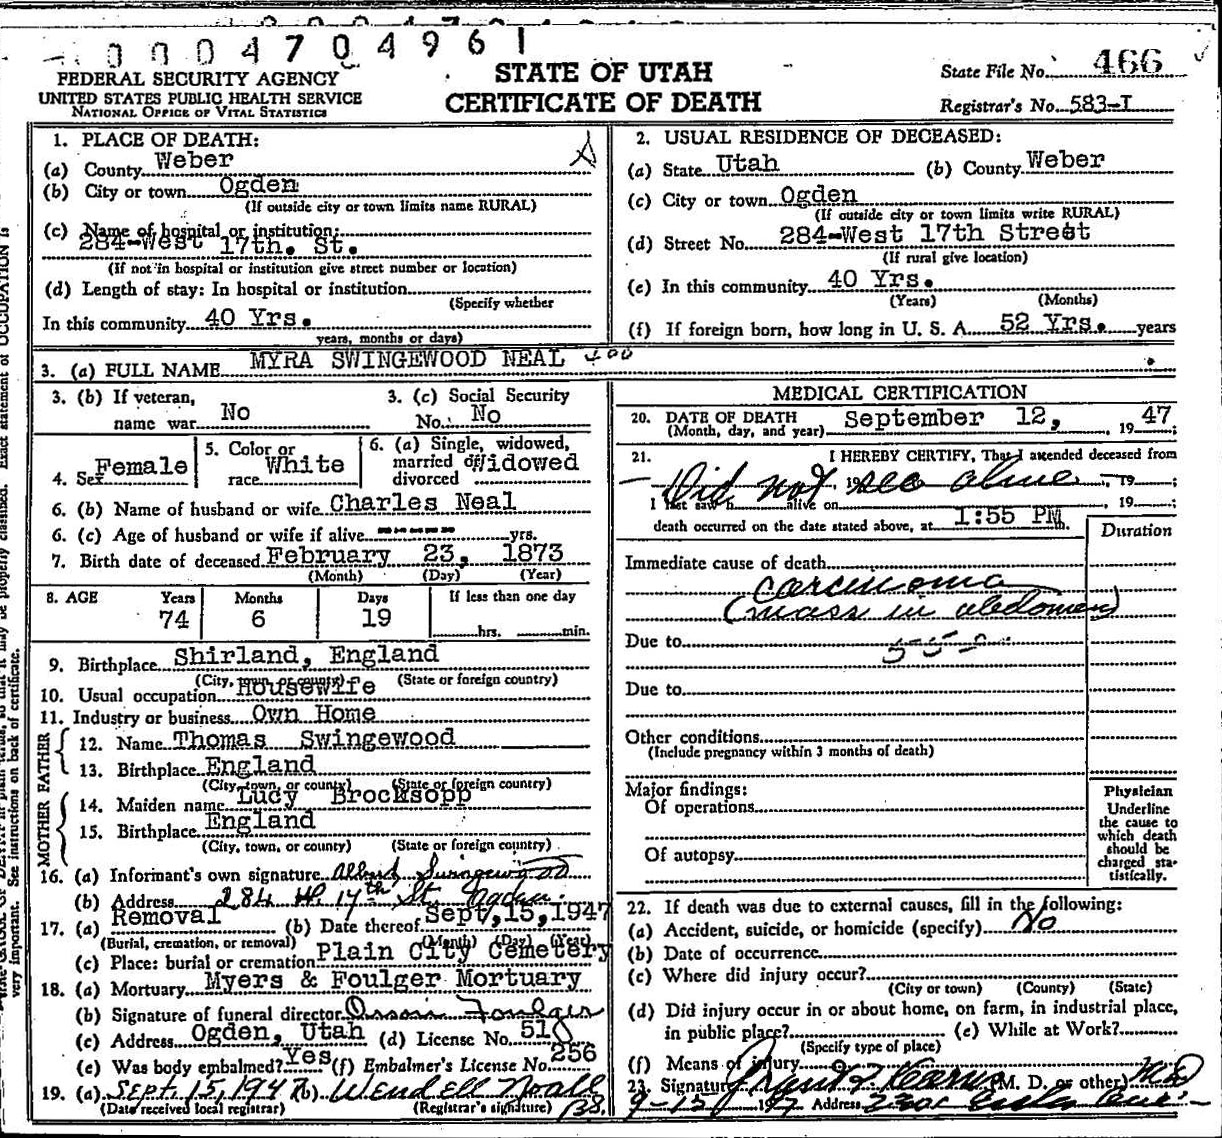 0004704961
FEDERAL SECURITY AGENCY
UNITED STATES PUBLIC HEALTH SERVICE
NATIONAL OFFICE OF VITAL STATISTICS
STATE OF UTAH
CERTIFICATE OF DEATH
State File No. 466
Registrar's No. 583-I
1. PLACE OF DEATH:
(a) County Weber
(b) City or town Ogden
(If outside city or town limits name RURAL)
(c) Name of hospital or institution:
284-West 17th. St.
(If not in hospital or institution give street number or location)
(d) Length of stay: In hospital or institution
(Specify whether
In this community 40 Yrs.
years, months or days)
2. USUAL RESIDENCE OF DECEASED:
(a) State Utah (b) County Weber
(c) City or town Ogden
(If outside city or town limits write RURAL)
(d) Street No. 284-West 17th Street
(If rural give location)
(e) In this community 40 Yrs.
(Years) (Months)
(f) If foreign born, how long in U. S. A. 52 Yrs. years
3. (a) FULL NAME MYRA SWINGEWOOD NEAL
3. (b) If veteran, name war No
3. (c) Social Security No. No
4. Sex Female
5. Color or race White
6. (a) Single, widowed, married or divorced Widowed
6. (b) Name of husband or wife Charles Neal
6. (c) Age of husband or wife if alive ------ yrs.
7. Birth date of deceased February 23, 1873
(Month) (Day) (Year)
8. AGE Years Months Days If less than one day
74 6 19 hrs. min.
9. Birthplace Shirland, England
(City, town, or county) (State or foreign country)
10. Usual occupation Housewife
11. Industry or business Own Home
FATHER
12. Name Thomas Swingewood
13. Birthplace England
(City, town, or county) (State or foreign country)
MOTHER
14. Maiden name Lucy Brocksopp
15. Birthplace England
(City, town, or county) (State or foreign country)
16. (a) Informant's own signature Albert Swingewood
(b) Address 284 W. 17th St. Ogden.
17. (a) Removal (b) Date thereof Sept, 15, 1947
(Burial, cremation, or removal) (Month) (Day) (Year)
(c) Place: burial or cremation Plain City Cemetery
18. (a) Mortuary Myers & Foulger Mortuary
(b) Signature of funeral director Foulger
(c) Address Ogden, Utah (d) License No. 518
(e) Was body embalmed? Yes (f) Embalmer's License No. 256
19. (a) Sept. 15, 1947 (b) Wendell Noall
(Date received local registrar) (Registrar's signature) BS.
MEDICAL CERTIFICATION
20. DATE OF DEATH September 12, 1947;
(Month, day, and year)
21. I HEREBY CERTIFY, That I attended deceased from
Did not see alive
I last saw h alive on , 19 ;
death occurred on the date stated above, at 1:55 PM.
Duration
Immediate cause of death
carcinoma
(mass in abdomen)
Due to
Due to
Other conditions
(Include pregnancy within 3 months of death)
Major findings:
Of operations
Of autopsy
Physician
Underline
the cause to
which death
should be
charged sta-
tistically.
22. If death was due to external causes, fill in the following:
(a) Accident, suicide, or homicide (specify) No
(b) Date of occurrence
(c) Where did injury occur?
(City or town) (County) (State)
(d) Did injury occur in or about home, on farm, in industrial place,
in public place? (e) While at Work?
(Specify type of place)
(f) Means of injury
23. Signature (M. D. or other) MD
Address
very important. See instructions on back of certificate.